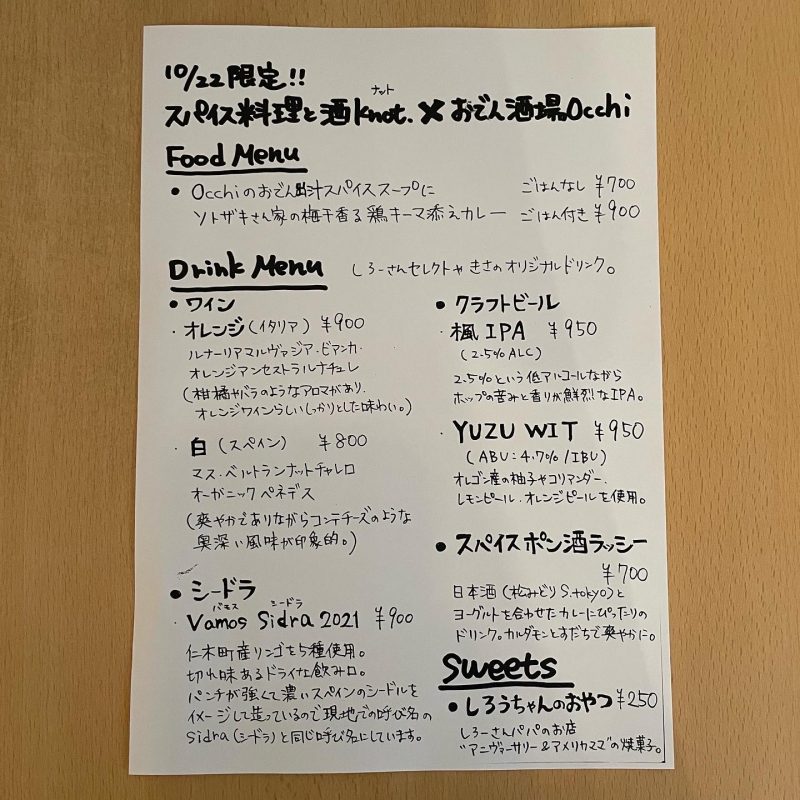 10/22限定!!
ナット
スパイス料理と酒Knot.×おでん酒場Occhi
Food Menu
• Occhiのおでん出汁スパイススープに ごはんなし ¥700
ソトザキさん家の梅干香る鶏キーマ添えカレー ごはん付き ¥900
Drink Menu しろーさんセレクトやきさのオリジナルドリンク。
• ワイン
・オレンジ(イタリア) ¥900
ルナーリアマルヴァジア・ビアンカ・
オレンジアンセストラルナチュレ
(柑橘やバラのようなアロマがあり、
オレンジワインらしいしっかりとした味わい。)
・白(スペイン) ¥800
マス・ベルトランナットチャレロ
オーガニックペネデス
(爽やかでありながらコンテチーズのような
奥深い風味が印象的。)
• シードラ
バモス シードラ
・Vamos Sidra 2021 ¥900
仁木町産リンゴを5種使用。
切れ味あるドライな飲み口。
パンチが強くて濃いスペインのシードルを
イメージして造っているので現地での呼び名の
sidra(シードラ)と同じ呼び名にしています。
• クラフトビール
・楓IPA ¥950
(2.5%ALC)
2.5%という低アルコールながら
ホップの苦みと香りが鮮烈なIPA。
・YUZU WIT ¥950
(ABU:4.7%/IBU)
オレゴン産の柚子やコリアンダー、
レモンピール・オレンジピールを使用。
• スパイスポン酒ラッシー
¥700
日本酒(松みどりS.tokyo)と
ヨーグルトを合わせたカレーにぴったりの
ドリンク。カルダモンとすだちで爽やかに。
Sweets
• しろうちゃんのおやつ ¥250
しろーさんパパのお店
"アニヴァーサリー&アメリカスママ"の焼菓子。